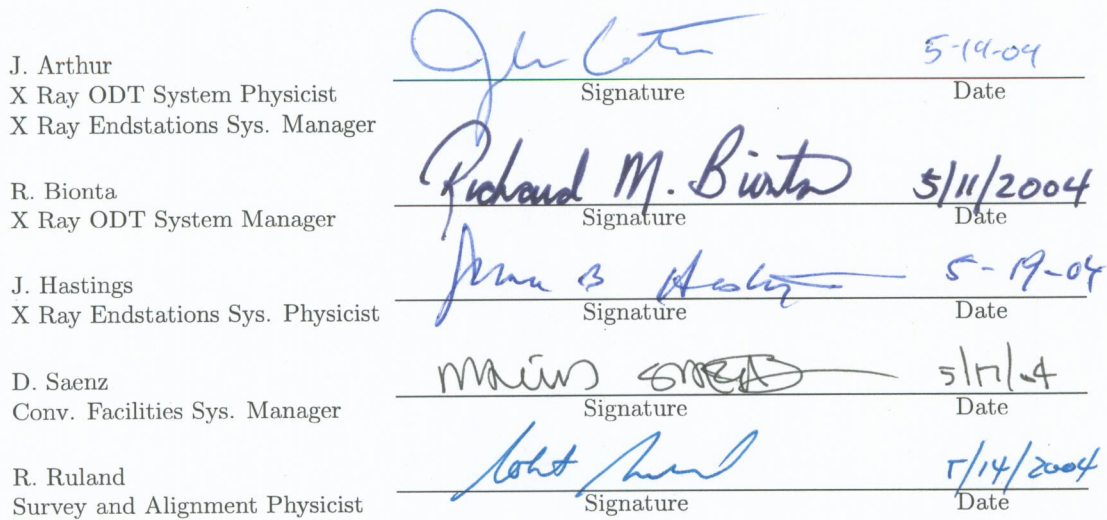 J. Arthur
X Ray ODT System Physicist
X Ray Endstations Sys. Manager
5-19-04
Signature Date
R. Bionta
X Ray ODT System Manager
Richard M. Bionta 5/11/2004
Signature Date
J. Hastings
X Ray Endstations Sys. Physicist
5-19-04
Signature Date
D. Saenz
Conv. Facilities Sys. Manager
5/17/04
Signature Date
R. Ruland
Survey and Alignment Physicist
5/14/2004
Signature Date